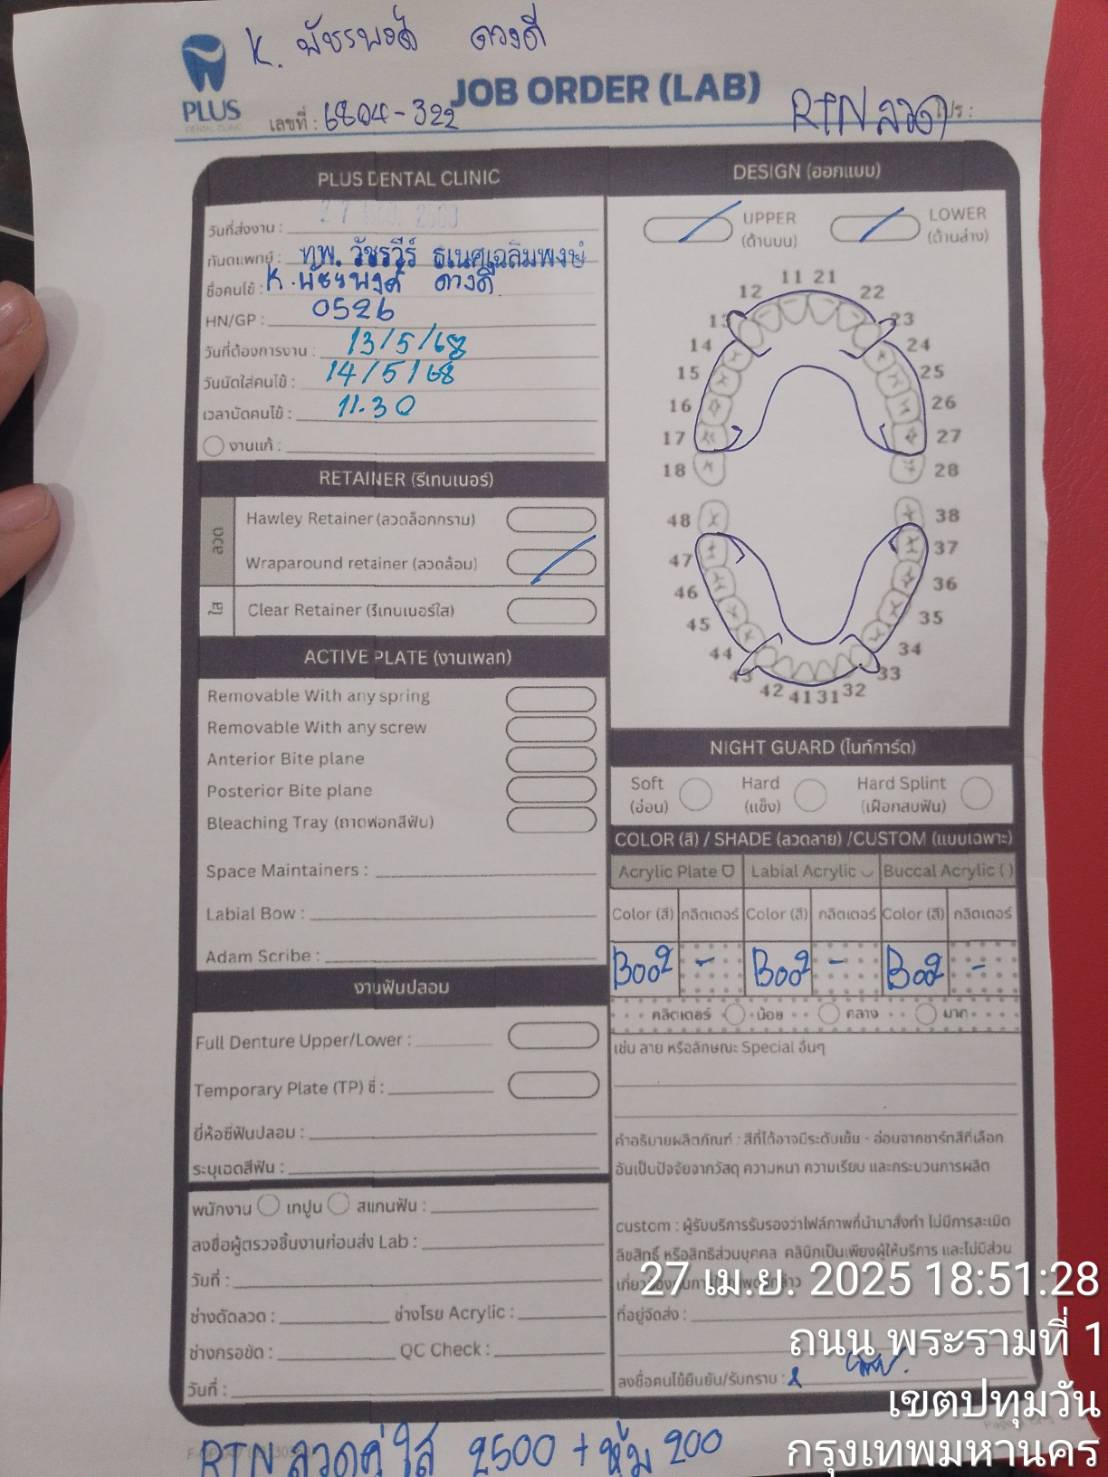 K. พัชรพงศ์ ดวงดี
PLUS
DENTAL CLINIC
JOB ORDER (LAB)
เลขที่ : 6804-322
RTN ลวด
โปร :
PLUS DENTAL CLINIC
วันที่ส่งงาน :
ทันตแพทย์ : ทพ. วัชรวีร์ ธเนศเฉลิมพงษ์
ชื่อคนไข้ : K. พัชรพงศ์ ดวงดี
HN/GP : 0526
วันที่ต้องการงาน : 13/5/68
วันนัดใส่คนไข้ : 14/5/68
เวลานัดคนไข้ : 11.30
งานแก้ :
RETAINER (รีเทนเนอร์)
ลวด
Hawley Retainer (ลวดล็อกกราม)
Wraparound retainer (ลวดล้อม)
ใส
Clear Retainer (รีเทนเนอร์ใส)
ACTIVE PLATE (งานเพลท)
Removable With any spring
Removable With any screw
Anterior Bite plane
Posterior Bite plane
Bleaching Tray (ถาดฟอกสีฟัน)
Space Maintainers :
Labial Bow :
Adam Scribe :
งานฟันปลอม
Full Denture Upper/Lower :
Temporary Plate (TP) ซี่ :
ยี่ห้อซี่ฟันปลอม :
ระบุเฉดสีฟัน :
พนักงาน เทปูน สแกนฟัน :
ลงชื่อผู้ตรวจชิ้นงานก่อนส่ง Lab :
วันที่ :
ช่างดัดลวด : ช่างโรย Acrylic :
ช่างกรอขัด : QC Check :
วันที่ :
DESIGN (ออกแบบ)
UPPER
(ด้านบน)
LOWER
(ด้านล่าง)
11 21
12 22
13 23
14 24
15 25
16 26
17 27
18 28
48 38
47 37
46 36
45 35
44 34
43 33
42 41 31 32
NIGHT GUARD (ไนท์การ์ด)
Soft
(อ่อน)
Hard
(แข็ง)
Hard Splint
(เฝือกสบฟัน)
COLOR (สี) / SHADE (ลวดลาย) /CUSTOM (แบบเฉพาะ)
Acrylic Plate Labial Acrylic Buccal Acrylic ( )
Color (สี) กลิตเตอร์ Color (สี) กลิตเตอร์ Color (สี) กลิตเตอร์
B002 - B002 - B002 -
กลิตเตอร์ น้อย กลาง มาก
เช่น ลาย หรือลักษณะ Special อื่นๆ
คำอธิบายผลิตภัณฑ์ : สีที่ได้อาจมีระดับเข้ม - อ่อนจากชาร์ทสีที่เลือก
อันเป็นปัจจัยจากวัสดุ ความหนา ความเรียบ และกระบวนการผลิต
custom : ผู้รับบริการรับรองว่าไฟล์ภาพที่นำมาสั่งทำ ไม่มีการละเมิด
ลิขสิทธิ์ หรือสิทธิส่วนบุคคล คลินิกเป็นเพียงผู้ให้บริการ และไม่มีส่วน
ที่อยู่จัดส่ง :
ลงชื่อคนไข้ยืนยัน/รับทราบ :
27 เม.ย. 2025 18:51:28
ถนน พระรามที่ 1
เขตปทุมวัน
กรุงเทพมหานคร
RTN ลวดคู่ ใส 2500 + หุ้ม 200